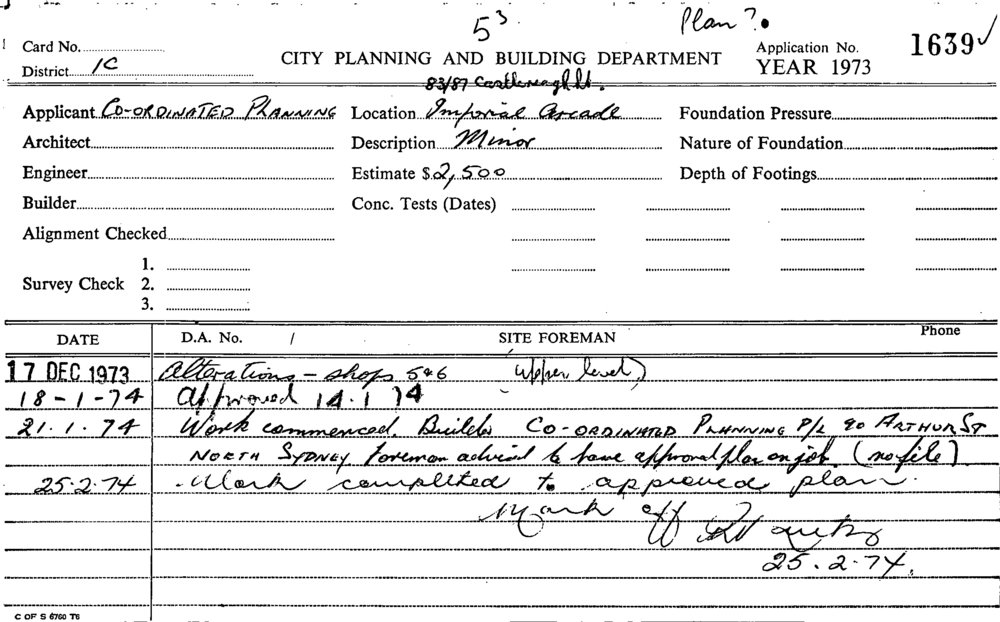 5³ Plan ?.
Card No. Application No. 1639✓
District 1C CITY PLANNING AND BUILDING DEPARTMENT YEAR 1973
83/87 Castlereagh St.
Applicant CO-ORDINATED PLANNING Location Imperial Arcade Foundation Pressure
Architect Description Minor Nature of Foundation
Engineer Estimate $2,500 Depth of Footings
Builder Conc. Tests (Dates)
Alignment Checked
1.
Survey Check 2.
3.
DATE D.A. No. / SITE FOREMAN Phone
17 DEC 1973 Alterations - shops 5&6 (upper level)
18-1-74 Approved 14.1.74
21.1.74 Work commenced. Builder CO-ORDINATED PLANNING P/L 90 ARTHUR ST
NORTH SYDNEY. Foreman advised to have approval plan on job. (no file).
25.2.74 Work completed to approved plan.
Mark off
25.2.74.
C OF S 6760 T6